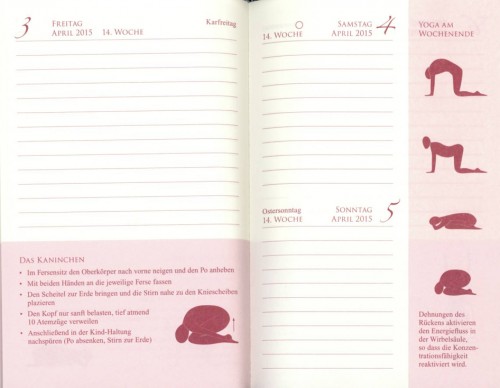 3 FREITAG Karfreitag
APRIL 2015 14. WOCHE
DAS KANINCHEN
• Im Fersensitz den Oberkörper nach vorne neigen und den Po anheben
• Mit beiden Händen an die jeweilige Ferse fassen
• Den Scheitel zur Erde bringen und die Stirn nahe zu den Kniescheiben
plazieren
• Den Kopf nur sanft belasten, tief atmend
10 Atemzüge verweilen
• Anschließend in der Kind-Haltung
nachspüren (Po absenken, Stirn zur Erde)
SAMSTAG 4
14. WOCHE APRIL 2015
Ostersonntag SONNTAG 5
14. WOCHE APRIL 2015
YOGA AM
WOCHENENDE
Dehnungen des
Rückens aktivieren
den Energiefluss in
der Wirbelsäule,
so dass die Konzen-
trationsfähigkeit
reaktiviert wird.